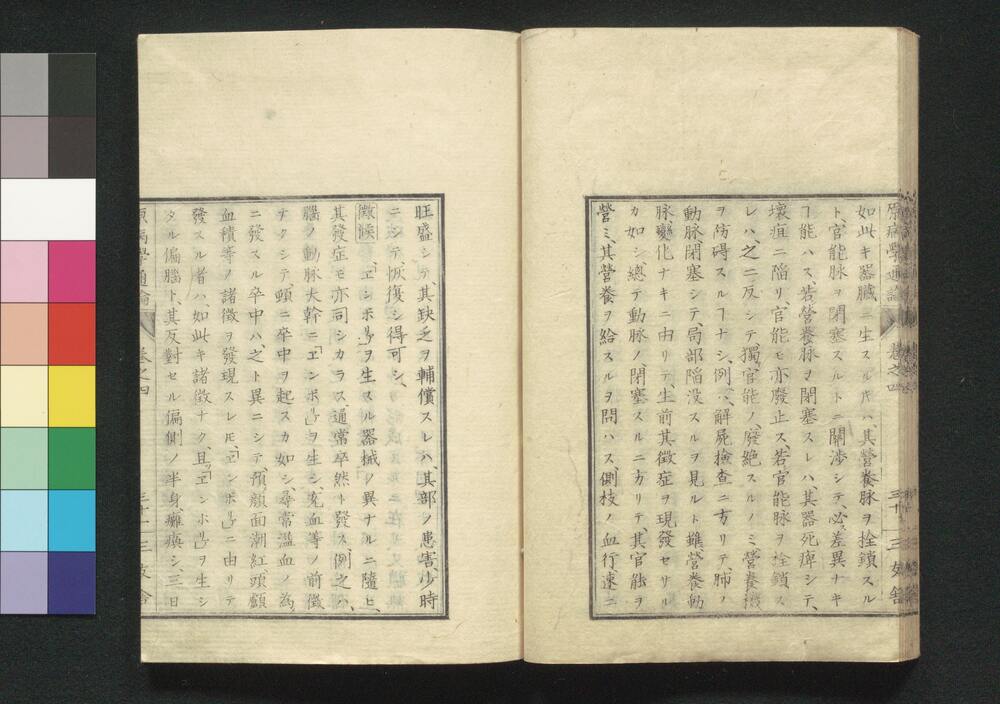 原病學通論 卷之四 三十 三友舍
如此キ器臟ニ生スル片ハ、其營養脉ヲ拴鎖スル
ト、官能脉ヲ閉塞スルトニ關渉シテ、必ス差異ナキ
ヿ能ハス、若營養脉ヲ閉塞スレハ、其器死痺シテ、
壞疽ニ陷リ、官能モ亦廢止ス、若官能脉ヲ拴鎖ス
レハ、之ニ反シテ、獨官能ノ廢絶スルノミ、營養機
ヲ防碍スルヿナシ、例ハ、解屍檢查ニ方リテ、肺ノ
動脉閉塞シテ、局部陷没スルヲ見ルト雖、營養動
脉變化ナキニ由リテ、生前其徵症ヲ現發セサル
カ如シ、總テ動脉ノ閉塞スルニ方リテ、其官能ヲ
營ミ、其營養ヲ給スルヲ問ハス、側枝ノ血行、速ニ
旺盛シテ、其缺乏ヲ輔償スレハ、其部ノ患害、少時
ニシテ恢復シ得可シ、
徵候 「エンボリー」ヲ生スル器械ノ異ナルニ隨ヒ、
其發症モ亦同シカラス、通常卒然ト發ス、例之ハ、
腦ノ動脉大幹ニ、「エンボリー」ヲ生シ、充血等ノ前徵
ナクシテ、頓ニ卒中ヲ起スカ如シ、尋常溢血ノ爲
ニ發スル卒中ハ之ト異ニシテ、預顏面潮紅、頭顱
血積等ノ諸徵ヲ發現スレ𪜈、「エンボリー」ニ由リテ
發スル者ハ、如此キ諸徵ナク、且「エンボリー」ヲ生シ
タル偏腦ト、其反對セル偏側ノ半身、癱瘓シ、三日
原病學通論 卷之四 三十一 三友舍